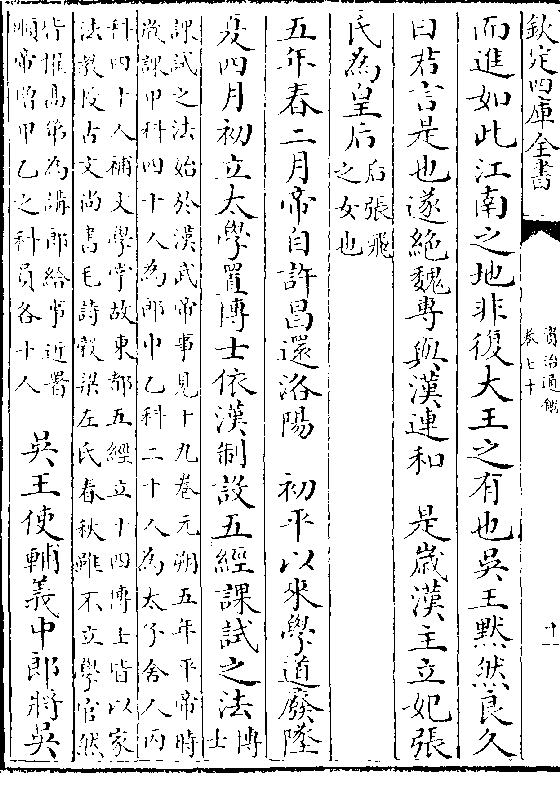 欽定四庫全書
資治通鑑
卷七十
十一
而進如此江南之地非復大王之有也吳王黙然良久
曰君言是也遂絶魏專與漢連和　是歲漢主立妃張
氏為皇后后張飛之女也
五年春二月帝自許昌還洛陽　初平以來學道廢墜
夏四月初立太學置博士依漢制設五經課試之法博士
課試之法始於漢武帝事見十九卷元朔五年平帝時
歲課甲科四十人為郎中乙科二十人為太子舍人丙
科四十人補文學掌故東都五經立十四博士皆以家
法教授古文尚書毛詩穀梁左氏春秋雖不立學官然
皆擢高第為講郎給事近署
順帝増甲乙之科員各十人　吳王使輔義中郎將吳